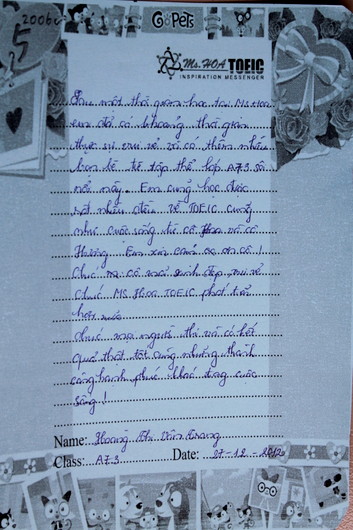 2006
5
GoPets
Ms. HOA TOEIC
INSPIRATION MESSENGER
Sau một thời gian học tại Ms Hoa
em đã có khoảng thời gian
thực sự vui vẻ và có thêm nhiều
bạn bè từ tập thể lớp A7.3 sôi
nổi này. Em cũng học được
rất nhiều điều về TOEIC cũng
như cuộc sống từ cô Hoa và cô
Hương. Em xin cảm ơn cô!
Chúc cô xinh đẹp, vui vẻ
chúc MS Hoa TOEIC phát triển
hơn nữa
chúc mọi người thi và có kết
quả thật tốt cùng những thành
công hạnh phúc khác trong cuộc
sống!
Name: Hoàng Thị Vân Trang
Class: A7.3 Date: 27-12-2012